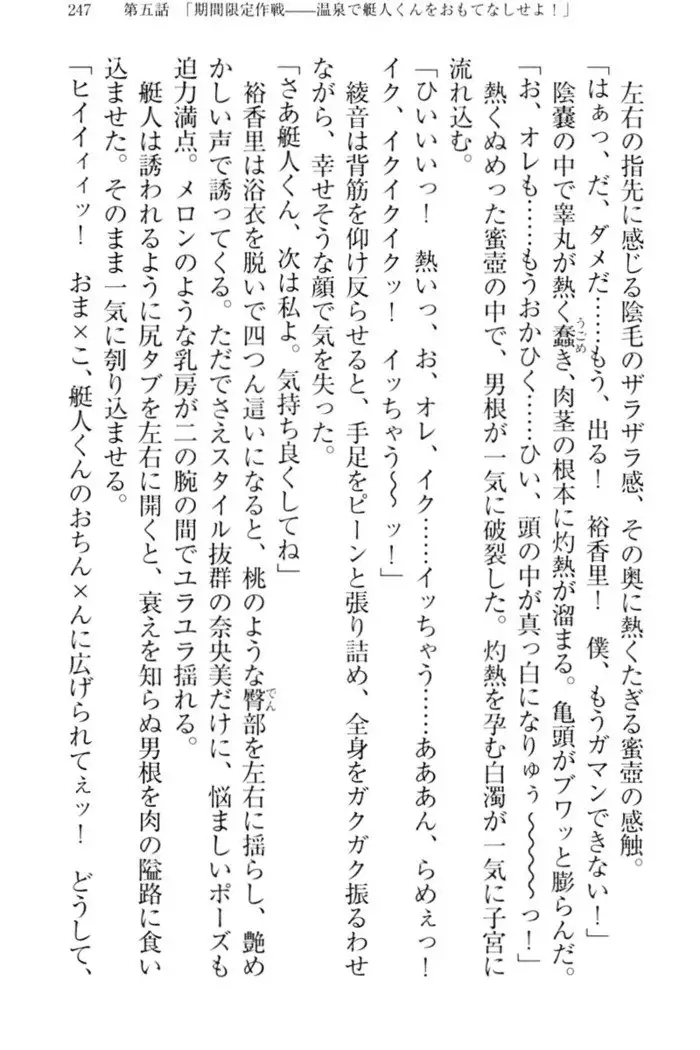 247　第五話　「期間限定作戦――温泉で艇人くんをおもてなしせよ！」
左右の指先に感じる陰毛のザラザラ感、その奥に熱くたぎる蜜壺の感触。
「はぁっ、だ、ダメだ……もう、出る！　裕香里！　僕、もうガマンできない！」
陰嚢の中で睾丸が熱く蠢き、肉茎の根本に灼熱が溜まる。亀頭がブワッと膨らんだ。
うごめ
「お、オレも……もうおかひく……ひい、頭の中が真っ白になりゅぅ～～～～っ！」
熱くぬめった蜜壺の中で、男根が一気に破裂した。灼熱を孕む白濁が一気に子宮に
流れ込む。
「ひいいいっ！　熱いっ、お、オレ、イク……イッちゃう……あああん、らめぇっ！
イク、イクイクイクッ！　イッちゃう～～ッ！」
綾音は背筋を仰け反らせると、手足をピーンと張り詰め、全身をガクガク振るわせ
ながら、幸せそうな顔で気を失った。
「さあ艇人くん、次は私よ。気持ち良くしてね」
裕香里は浴衣を脱いで四つん這いになると、桃のような臀部を左右に揺らし、艶め
でん
かしい声で誘ってくる。ただでさえスタイル抜群の奈央美だけに、悩ましいポーズも
迫力満点。メロンのような乳房が二の腕の間でユラユラ揺れる。
艇人は誘われるように尻タブを左右に開くと、衰えを知らぬ男根を肉の隘路に食い
込ませた。そのまま一気に刳り込ませる。
「ヒイイィィッ！　おま×こ、艇人くんのおちん×んに広げられてぇッ！　どうして、